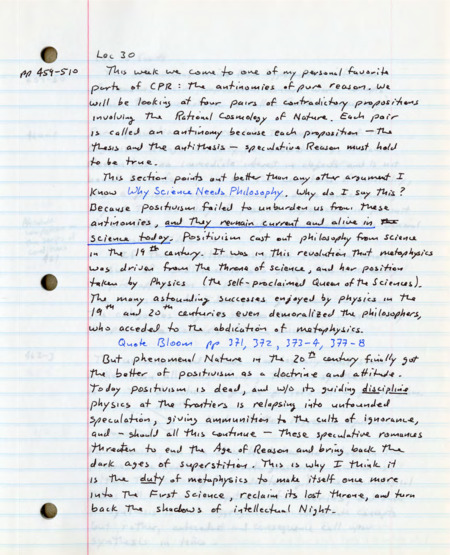 Lec 30
pp 459-510
This week we come to one of my personal favorite
parts of CPR: The antinomies of pure reason. We
will be looking at four pairs of contradictory propositions
involving The Rational Cosmology of Nature. Each pair
is called an antinomy because each proposition — The
Thesis and The antithesis — speculative Reason must hold
to be true.
This section points out better than any other argument I
know Why Science Needs Philosophy. Why do I say this?
Because positivism failed to unburden us from These
antinomies, and They remain current and alive in
science today. Positivism cast out philosophy from science
in The 19th century. It was in this revolution That metaphysics
was driven from the throne of science, and her position
taken by Physics (The self-proclaimed Queen of the Sciences).
The many astounding successes enjoyed by physics in the
19th and 20th centuries even demoralized the philosophers,
who acceded to the abdication of metaphysics.
Quote Bloom pp 371, 372, 373-4, 377-8
But phenomenal Nature in The 20th century finally got
the better of positivism as a doctrine and attitude.
Today positivism is dead, and w/o its guiding discipline
physics at the frontiers is relapsing into unfounded
speculation, giving ammunition to the cults of ignorance,
and - should all this continue — These speculative romances
Threaten to end the Age of Reason and bring back The
dark ages of superstition. This is why I think it
is The duty of metaphysics to make itself once more
into The First Science, reclaim its lost Throne, and turn
back The shadows of intellectual Night.